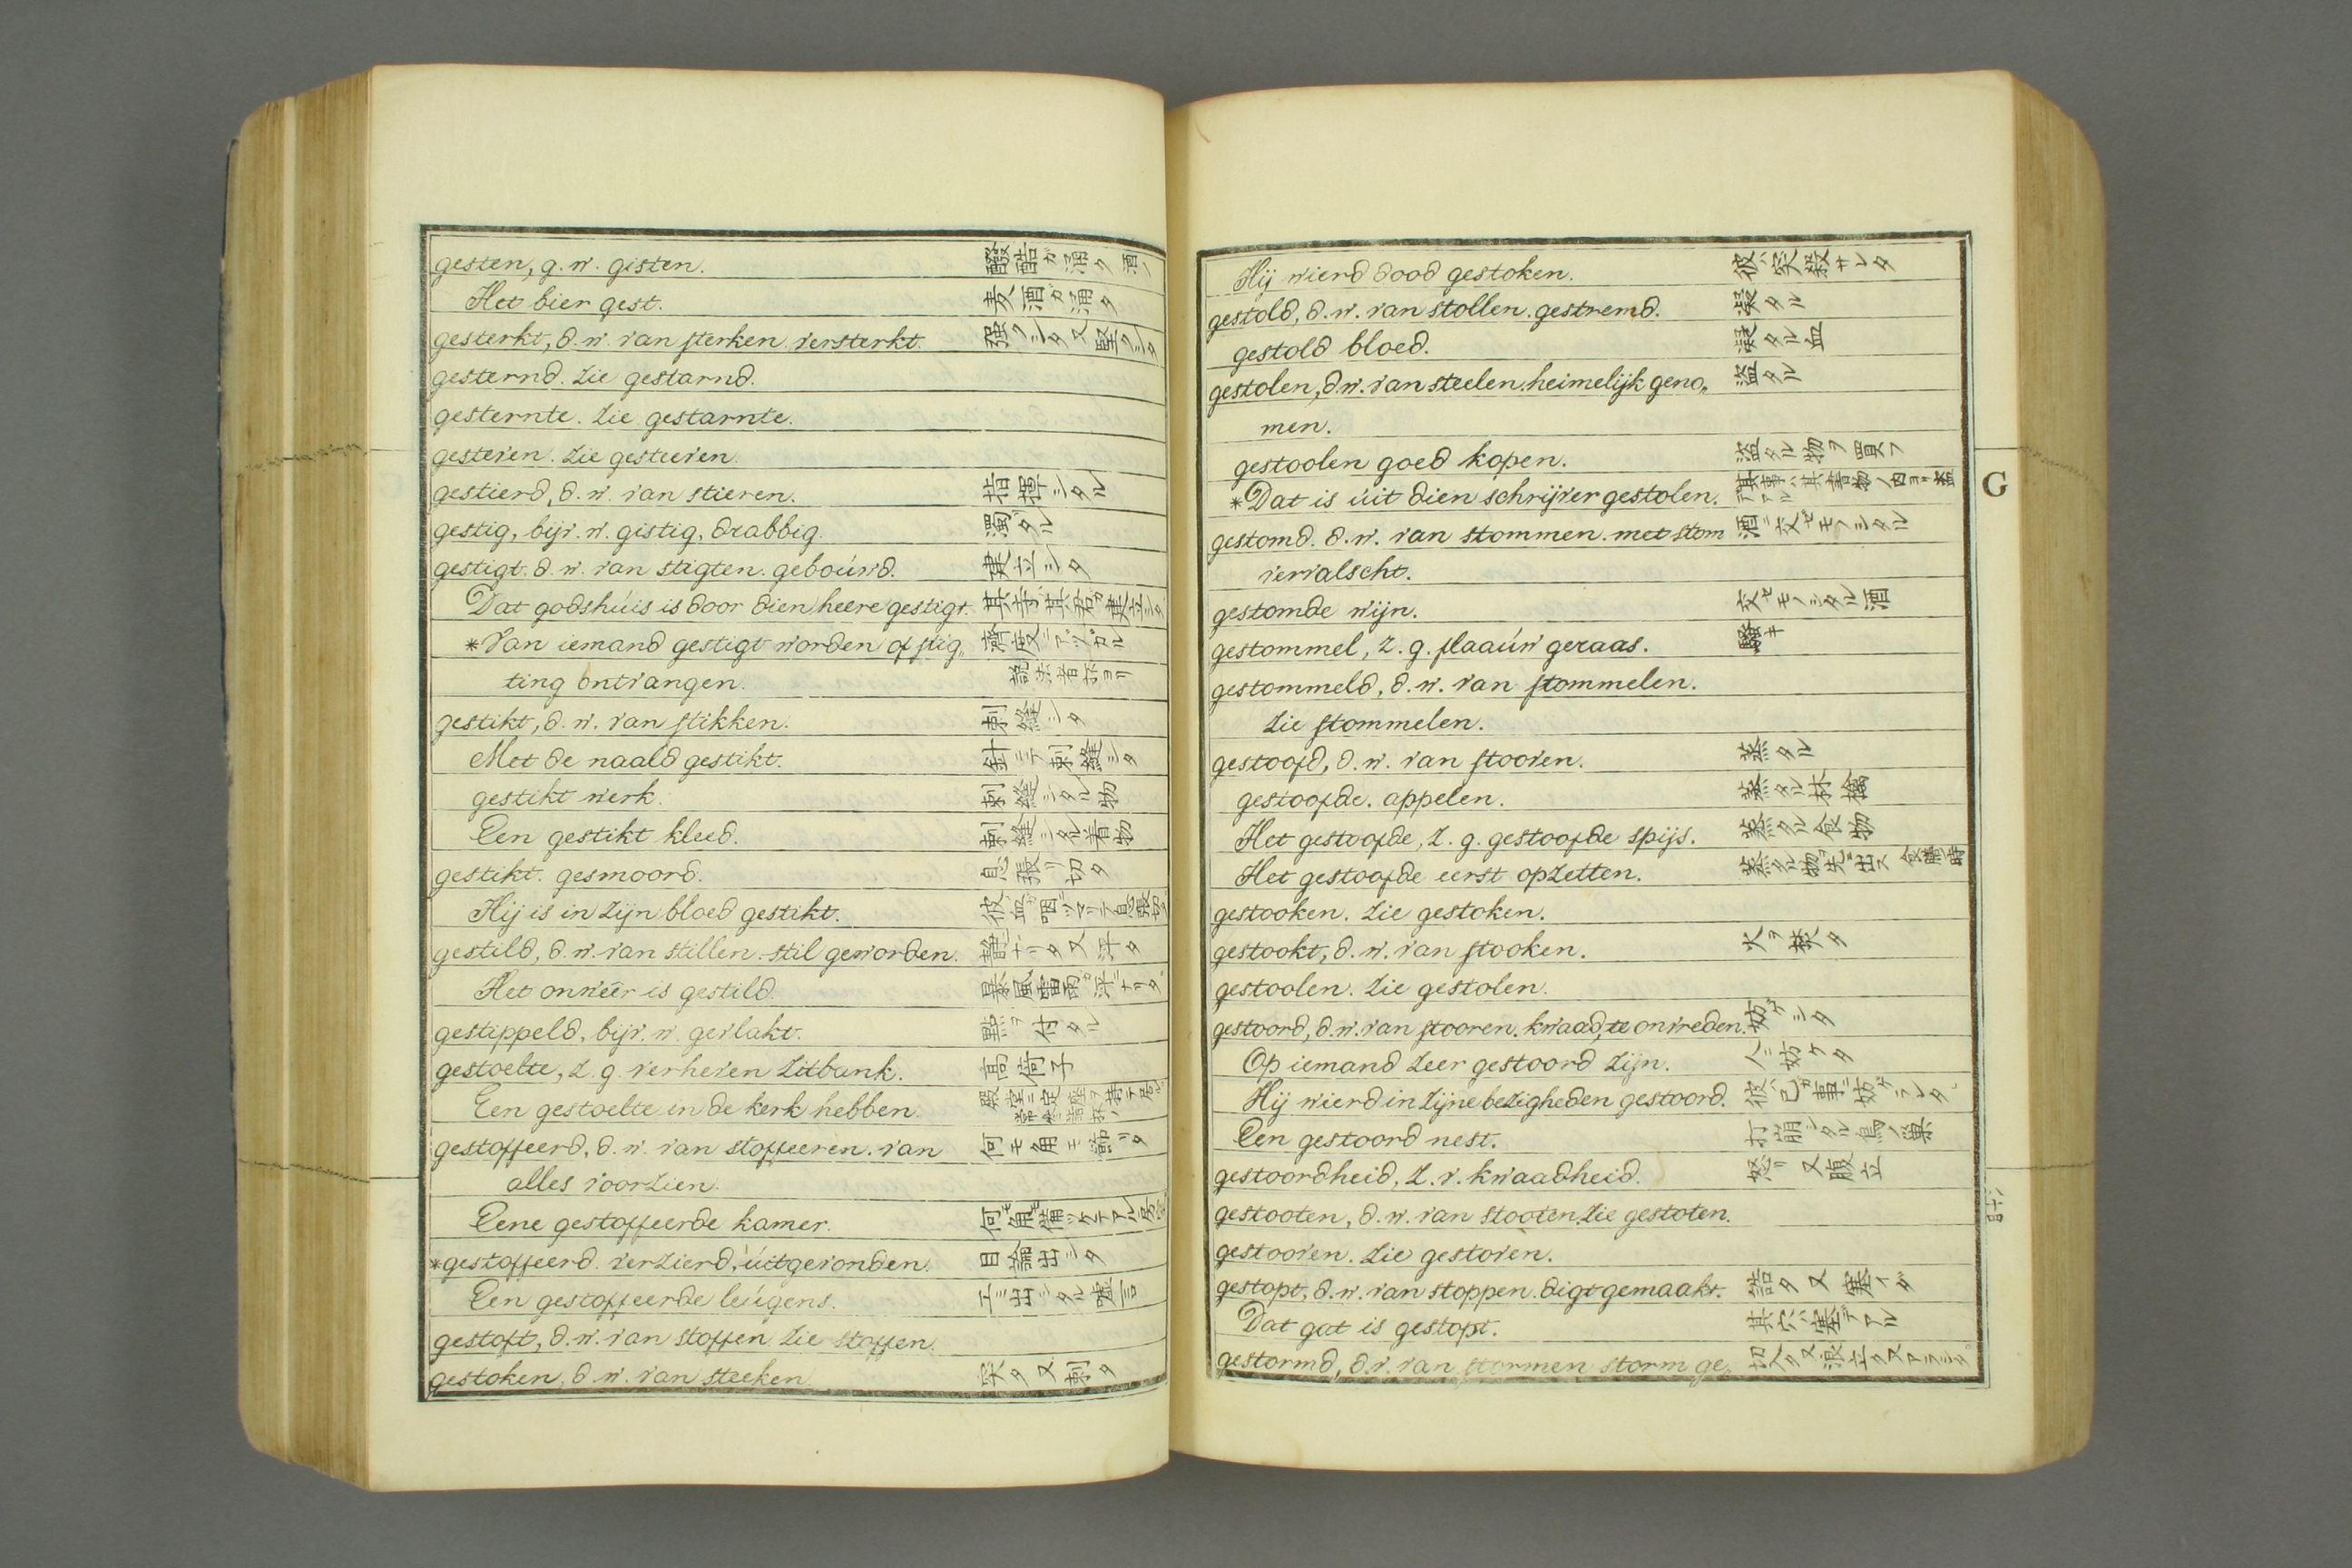 gesten, g. w. gisten. 醱酷ガ涌ク
Het bier gest. 麦酒ガ涌タ
gesterkt, d. w. van sterken. versterkt. 强クシタ又堅クシタ
gesternd. zie gestarnd.
gesternte. zie gestarnte.
gesteven. zie gesteeven.
gestierd, d. w. van stieren. 指揮シタル
gestig, bijv. w. gistig, drabbig. 濁タル
gestigt. d. w. van stigten. geboúwd. 建立シタ
Dat godshúis is door dien heere gestigt.
*Van iemand gestigt worden of stig„
ting ontvangen.
gestikt, d. w. van stikken. 刺縫シタ
Met de naald gestikt. 針ニテ刺縫シタ
gestikt werk. 刺縫シタル物
Een gestikt kleed. 刺縫シタル着物
gestikt. gesmoord. 息張リ切タ
Hij is in zijn bloed gestikt.
gestild, d. w. van stillen. stil geworden. 靜ナリタ又浮タ
Het onwêer is gestild.
gestippeld, bijv. w. gevlakt. 點ヲ付タル
gestoelte, z. g. verheven zitbank. 高椅子
Een gestoelte in de kerk hebben.
gestoffeerd, d. w. van stoffeeren. van 何モ角モ
alles voorzien.
Eene gestoffeerde kamer.
*gestoffeerd. verzierd, úitgevonden. 目論出シタ
Een gestoffeerde leúgens. 工ミ出シタル嘘言
gestoft, d. w. van stoffen. zie stoffen.
gestoken, d. w. van steeken. 突タ又刺タ
Hij wierd dood gestoken. 彼ハ突殺サレタ
gestold, d. w. van stollen. gestremd. 凝タル
gestold bloed. 凝タル血
gestolen, d. w. van steelen. heimelijk geno„ 盗タル
men.
gestoolen goed kopen. 盗タル物ヲ買フ
*Dat is úit dien schrijver gestolen.
G
gestomd. d. w. van stommen. met stom 酒ニ交ゼモノシタル
vervalscht.
gestomde wijn. 交ゼモノシタル酒
gestommel, z. g. flaaúw geraas. 騒キ
gestommeld, d. w. van stommelen.
zie stommelen.
gestoofd, d. w. van stooven. 蒸タル
gestoofde. appelen. 蒸タル林檎
Het gestoofde, z. g. gestoofde spijs. 蒸タル食物
Het gestoofde eerst opzetten.
gestooken. zie gestoken.
gestookt, d. w. van stooken. 火ヲ焚タ
gestoolen. zie gestolen.
gestoord, d. w. van stooren. kwaad, te onvreden. 妨ゲシタ
Op iemand zeer gestoord zijn. 人ニ妨ケタ
Hij wierd in zijne bezigheden gestoord. 彼ハ己ガ事ニ妨ゲラレタ
Een gestoord nest. 打崩シタル鳥ノ巣
gestoordheid, z. v. kwaadheid. 怒リ又腹立
gestooten, d. w. van stooten. zie gestoten.
gestooven. zie gestoven.
gestopt, d. w. van stoppen. digt gemaakt. 詰タ又塞イダ
Dat gat is gestopt. 其穴ハ塞デアル
gestormd, d. v. van stormen storm ge„